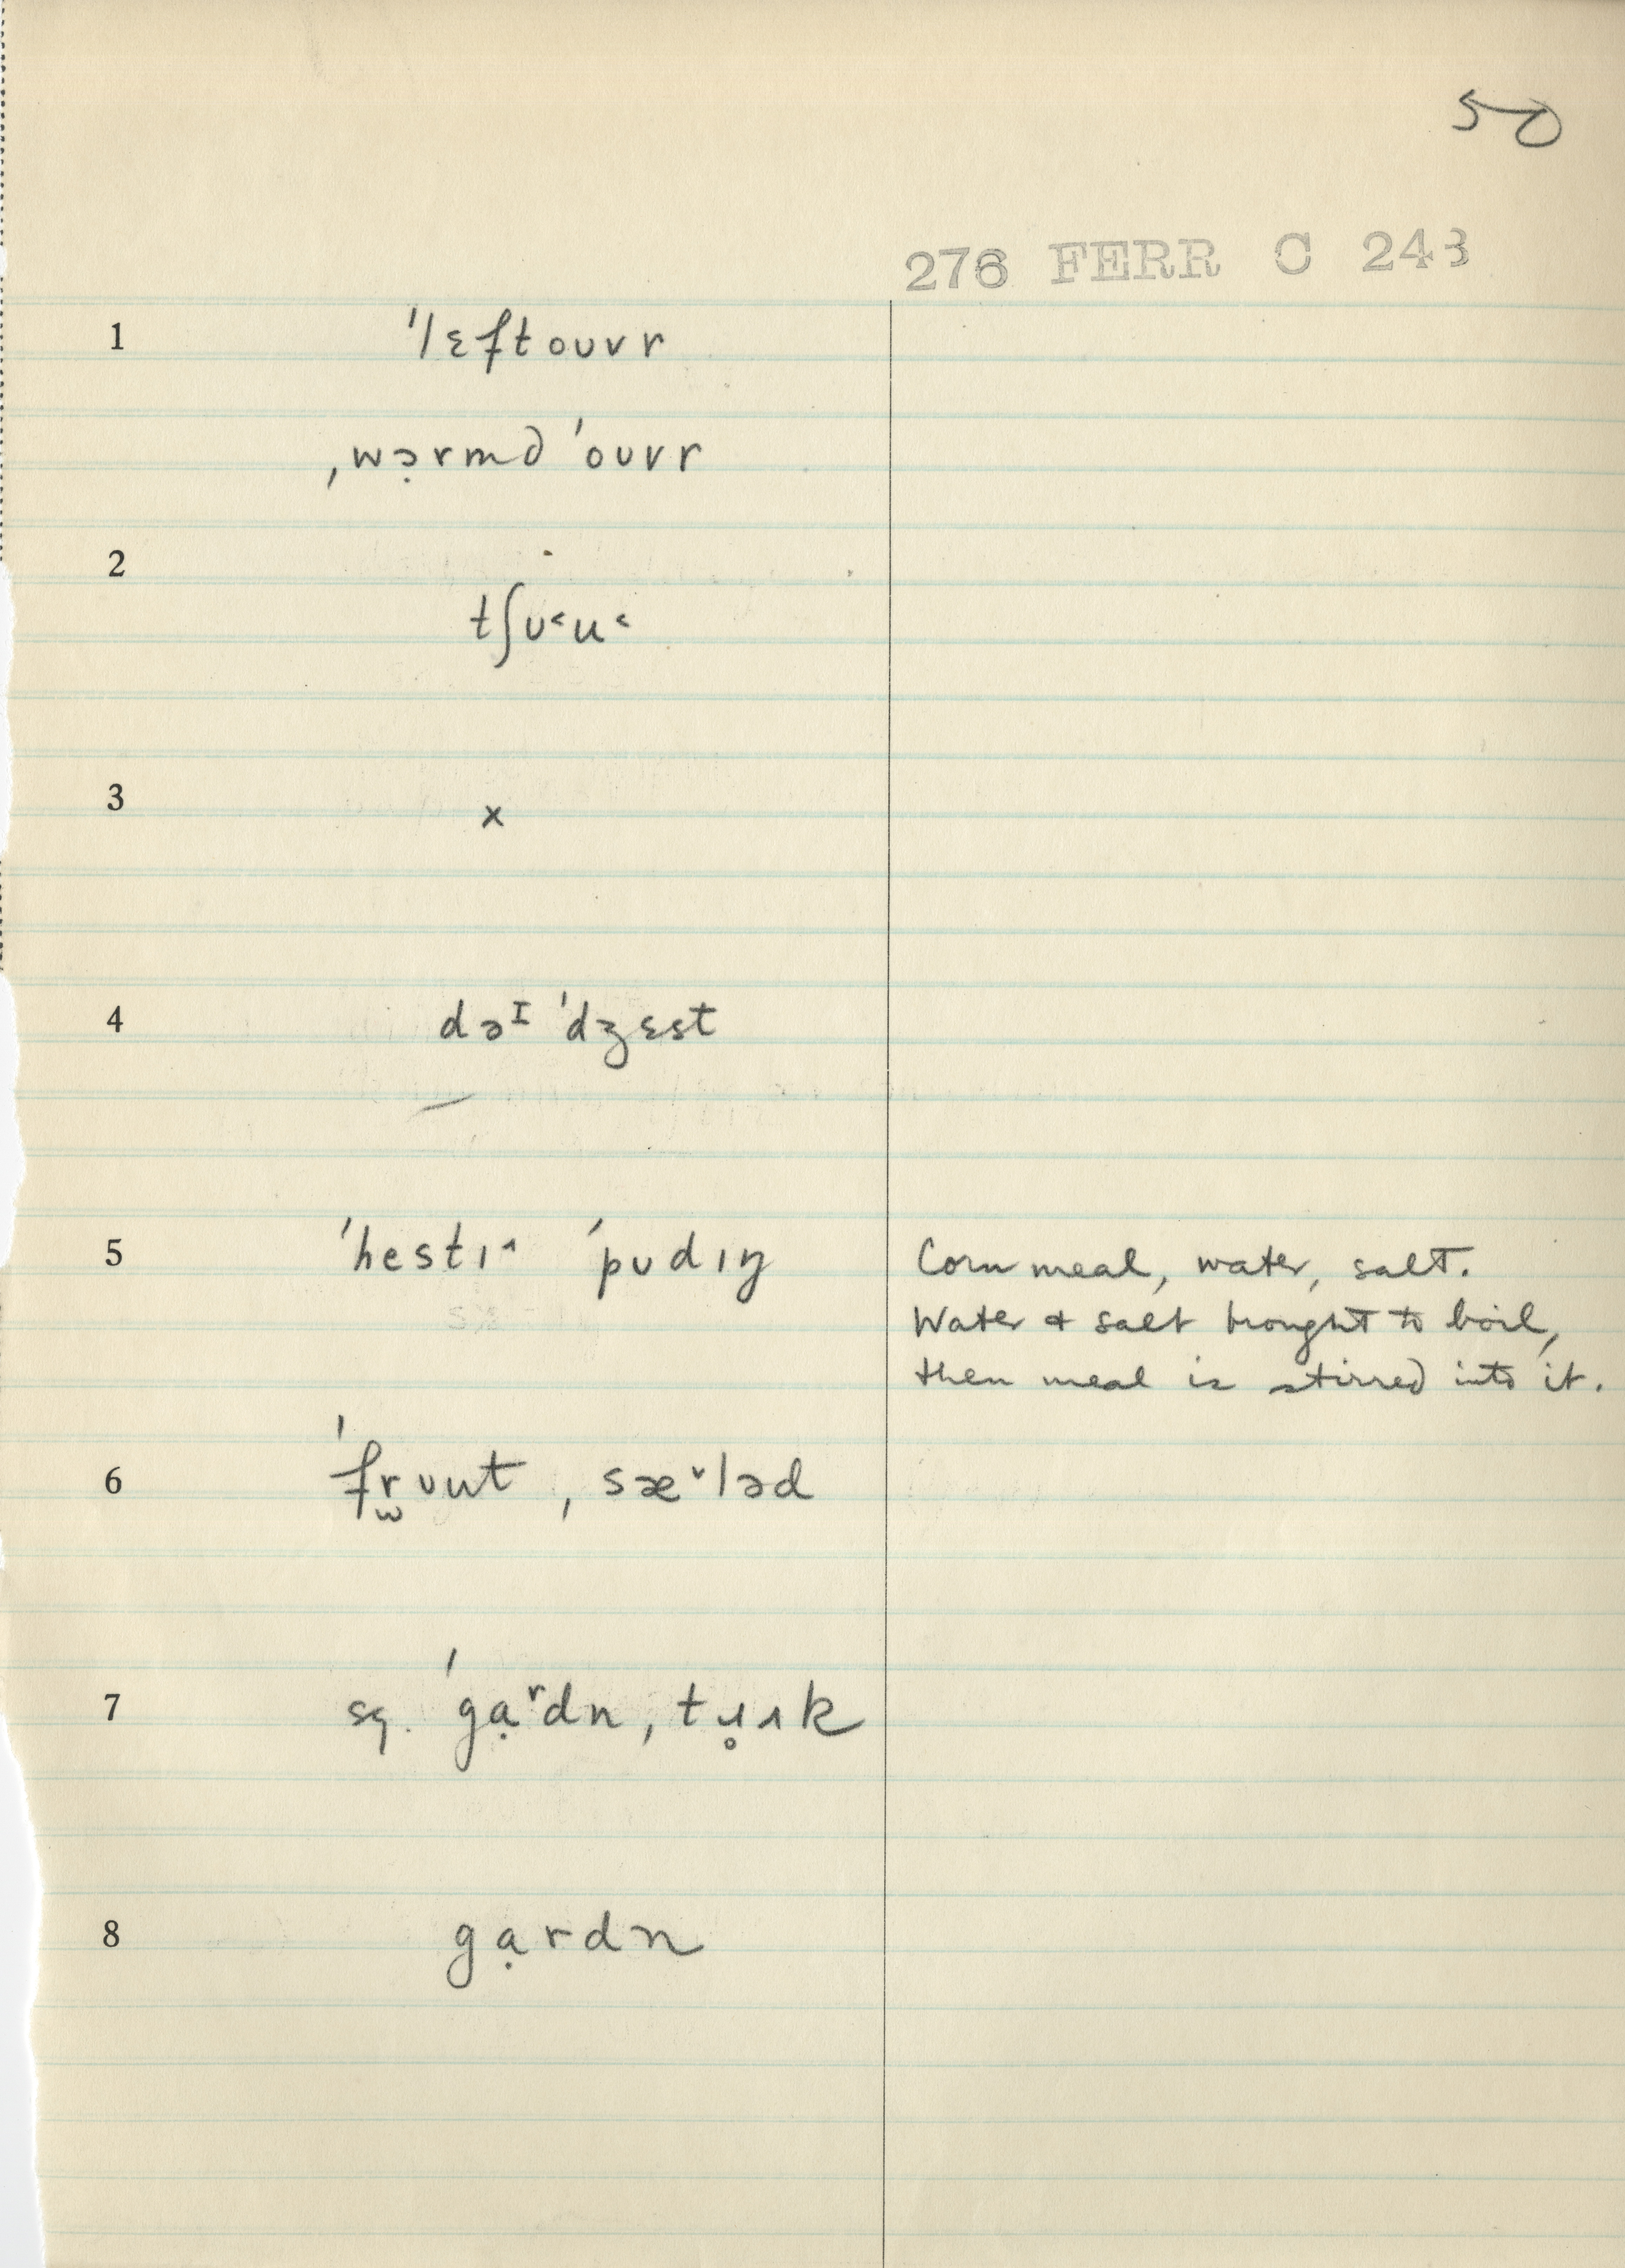 50
276 FERR C 243
1 ˈlɛftoʊvr
ˌwə̣rmd ˈoʊvr
2
tʃʊ˂u˂
3 x
4 dəᴵ ˈdʒɛst
5 ˈhestɪ˄ ˈpʊdɪŋ Corn meal, water, salt.
Water & salt brought to boil,
then meal is stirred into it.
6 ˈfr̫ʊut ˌsæ˅ləd
7 sg. ˈgạʳdn, tɹ̥ʌk
8 gạrdn